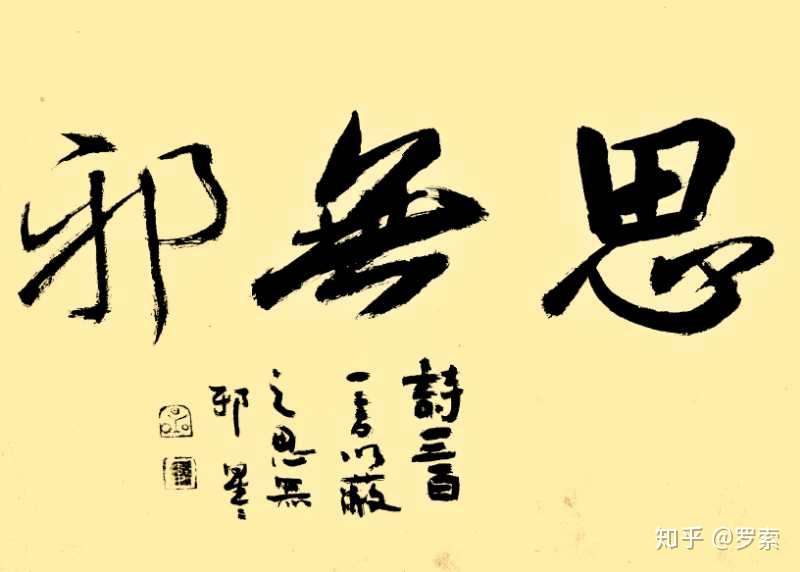 思無邪
詩三百
一言以蔽
之思無
邪
知乎 @罗索